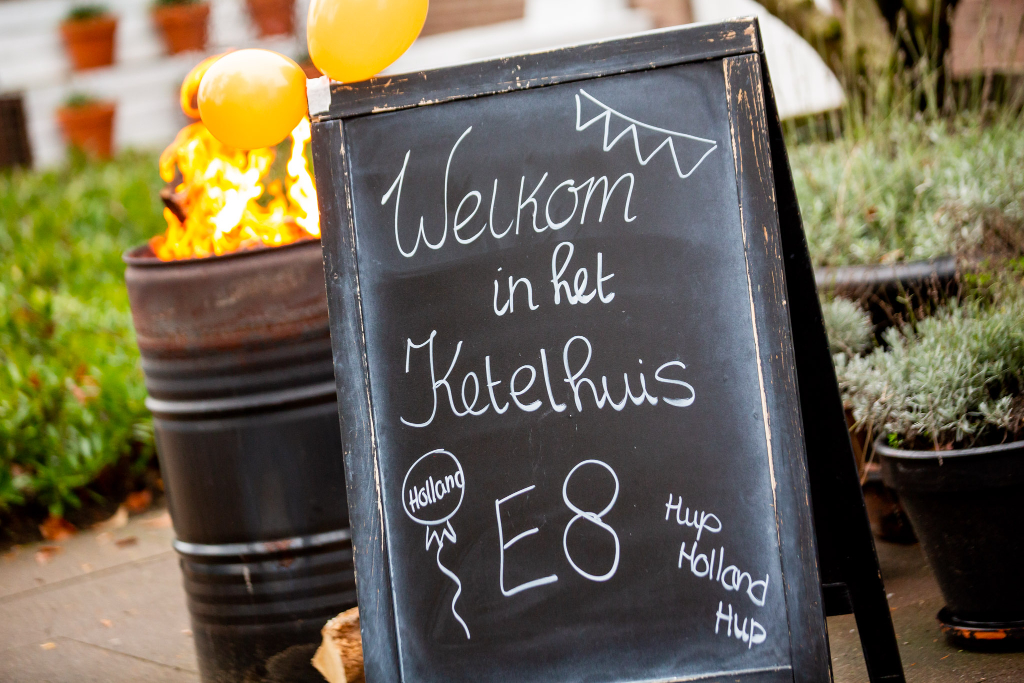 Welkom
in het
Ketelhuis
Holland
E8
Hup
Holland
Hup